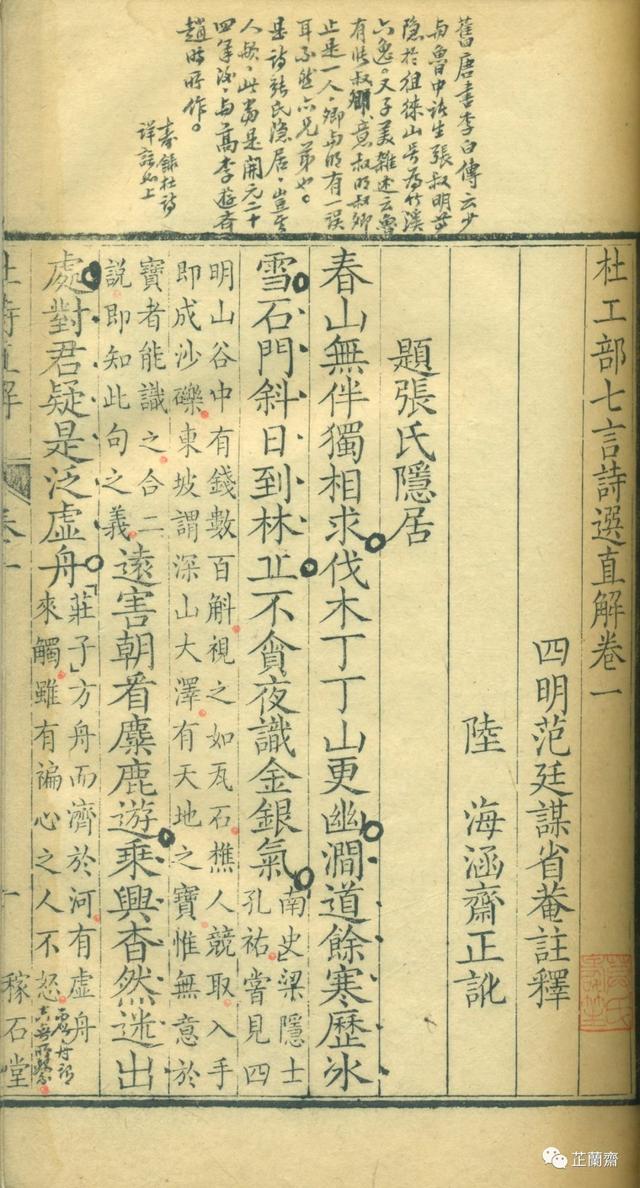 舊唐書李白傳云少
與魯中諸生張叔明等
隱於徂徠山号為竹溪
六逸。又子美雜述云魯
有張叔卿、意叔明叔卿
止是一人,卿与明有一误
耳不然亦兄弟也。
是诗張氏隱居,豈其
人歟,此當是開元二十
四年後,与高李遊齊
趙時所作。
壽錄杜詩
詳註如上
杜工部七言詩選直解卷一
四明范廷謀省菴註釋
陸 海涵齋正訛
題張氏隱居
春山無伴獨相求伐木丁丁山更幽澗道餘寒歷冰
雪石門斜日到林丘不貪夜識金銀氣南史梁隱士
孔祐嘗見四
明山谷中有錢數百斛視之如瓦石樵人競取入手
即成沙礫東坡謂深山大澤有天地之寶惟無意於
寶者能識之合二
說即知此句之義遠害朝看麋鹿遊乘興杳然迷出
處對君疑是泛虛舟莊子方舟而濟於河有虛舟
來觸雖有褊心之人不怒
杜詩直解
卷一
一
稼石堂
芷蘭齋